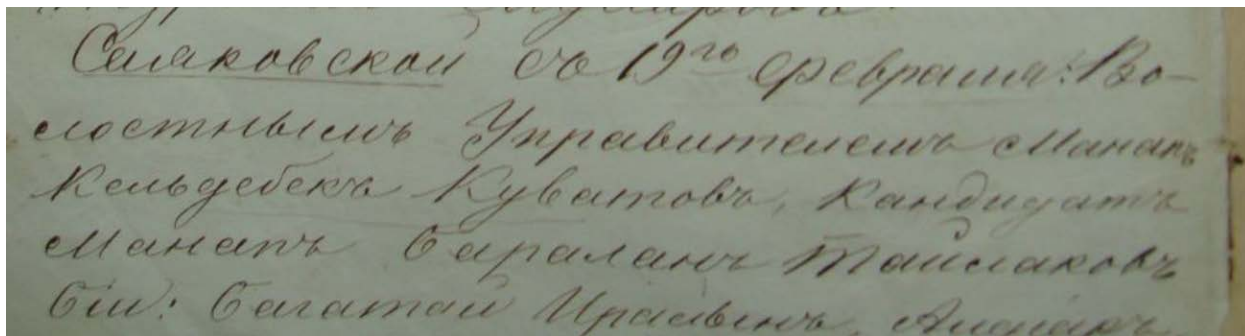 Саяковской съ 19го февраля: Во-
лостнымъ Управителемъ Манапъ
Кельдебекъ Куватовъ, Кандидатъ
Манапъ Баралан Тайлаковъ
Біи: Багатай